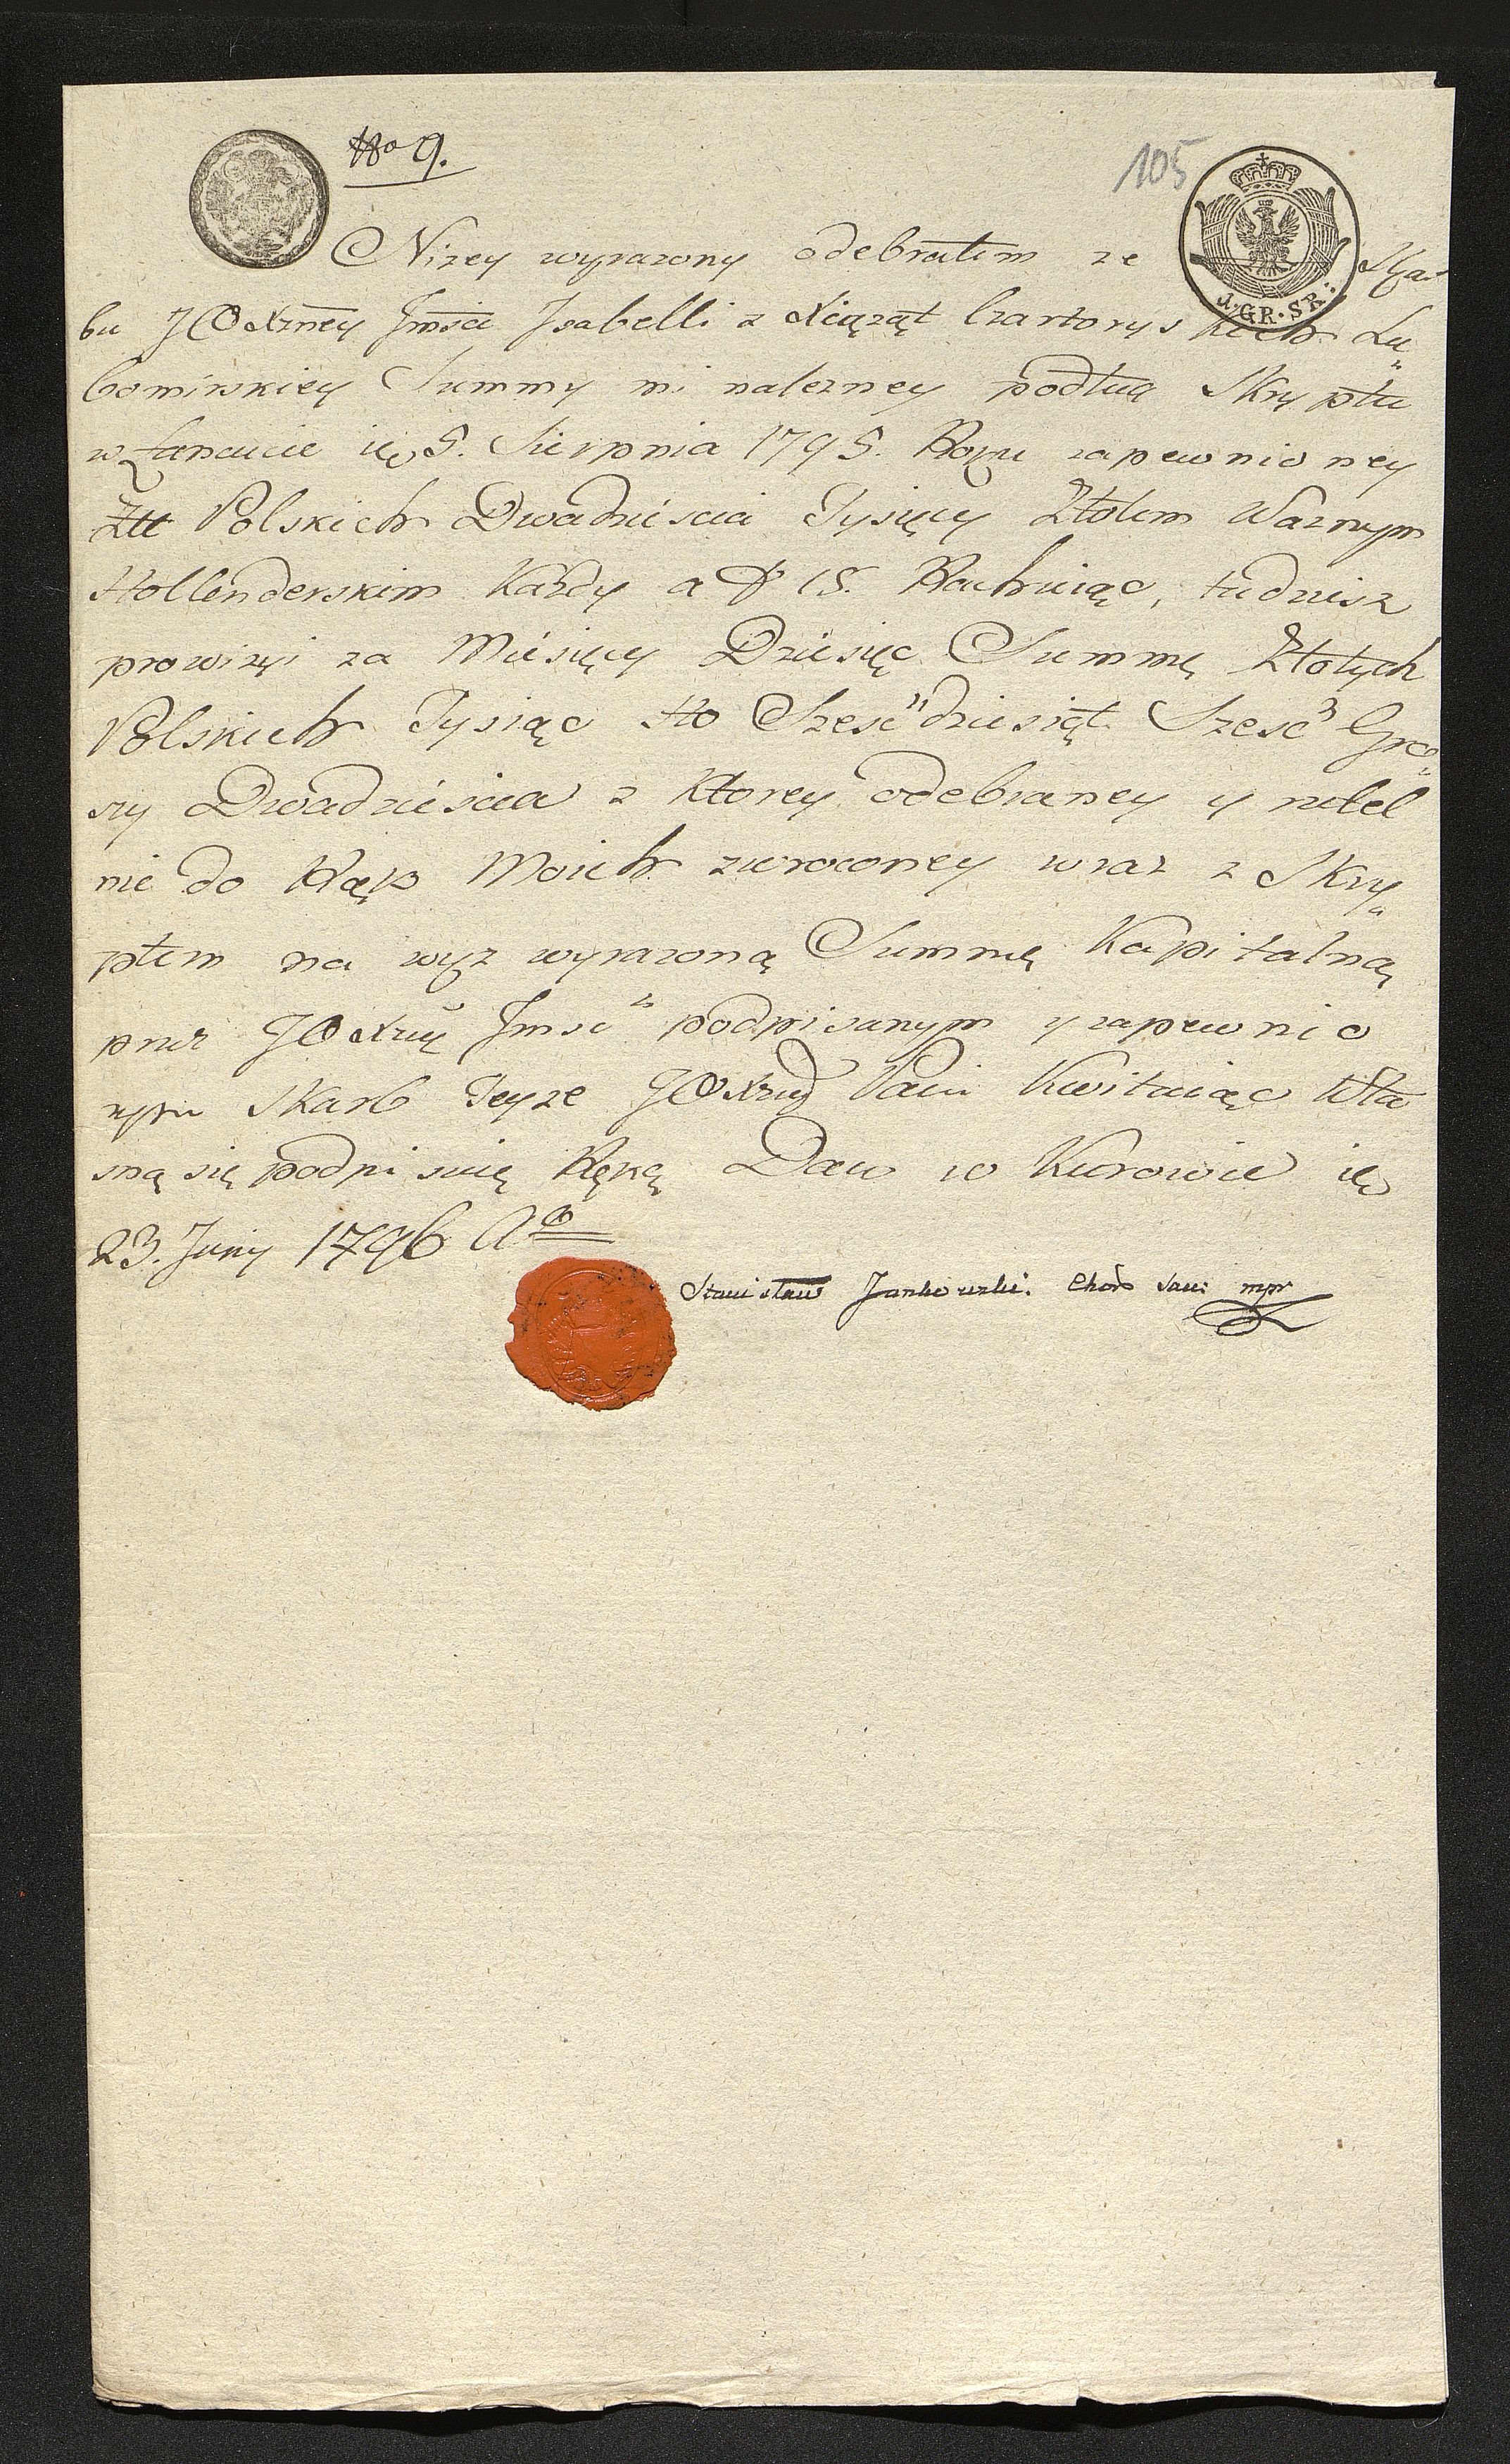 No 9.
105
1.GR.SR.
Nizey wyrazony odebrałem ze Skar
bu JO Xzney Jmsci Jsabelli z Xiąząt Czartoryskich Lu„
bomirskiey Summy mi nalezney podług Skryptu
w Łancucie 5. Sierpnia 1795. Roku zapewnioney
Złł Polskich Dwadziescia Tysięcy Złotem Waznym
Hollenderskim Każdy a # 18. Rachuiąc, tudziesz
prowizyi za Miesięcy Dziesięc Summę Złotych
Polskich Tysiąc Sto Szesc"dziesiąt Szesc Gro„
szy Dwadziescia z Ktorey odebraney y rzetel
nie do Rąk Moich zwroconey wraz z Skry„
ptem na wyz wyrazoną Summę Kapitalną
przez JO Xzuę Jmsc podpisanym y zapewnio
nym Skarb Teyze JO Xzny Pani Kwituiąc Wła
sną się podpisuię Ręką Dan w Kurowie
23. Juny 1796 Ao
Stanisław Jankowski. Chor mpr